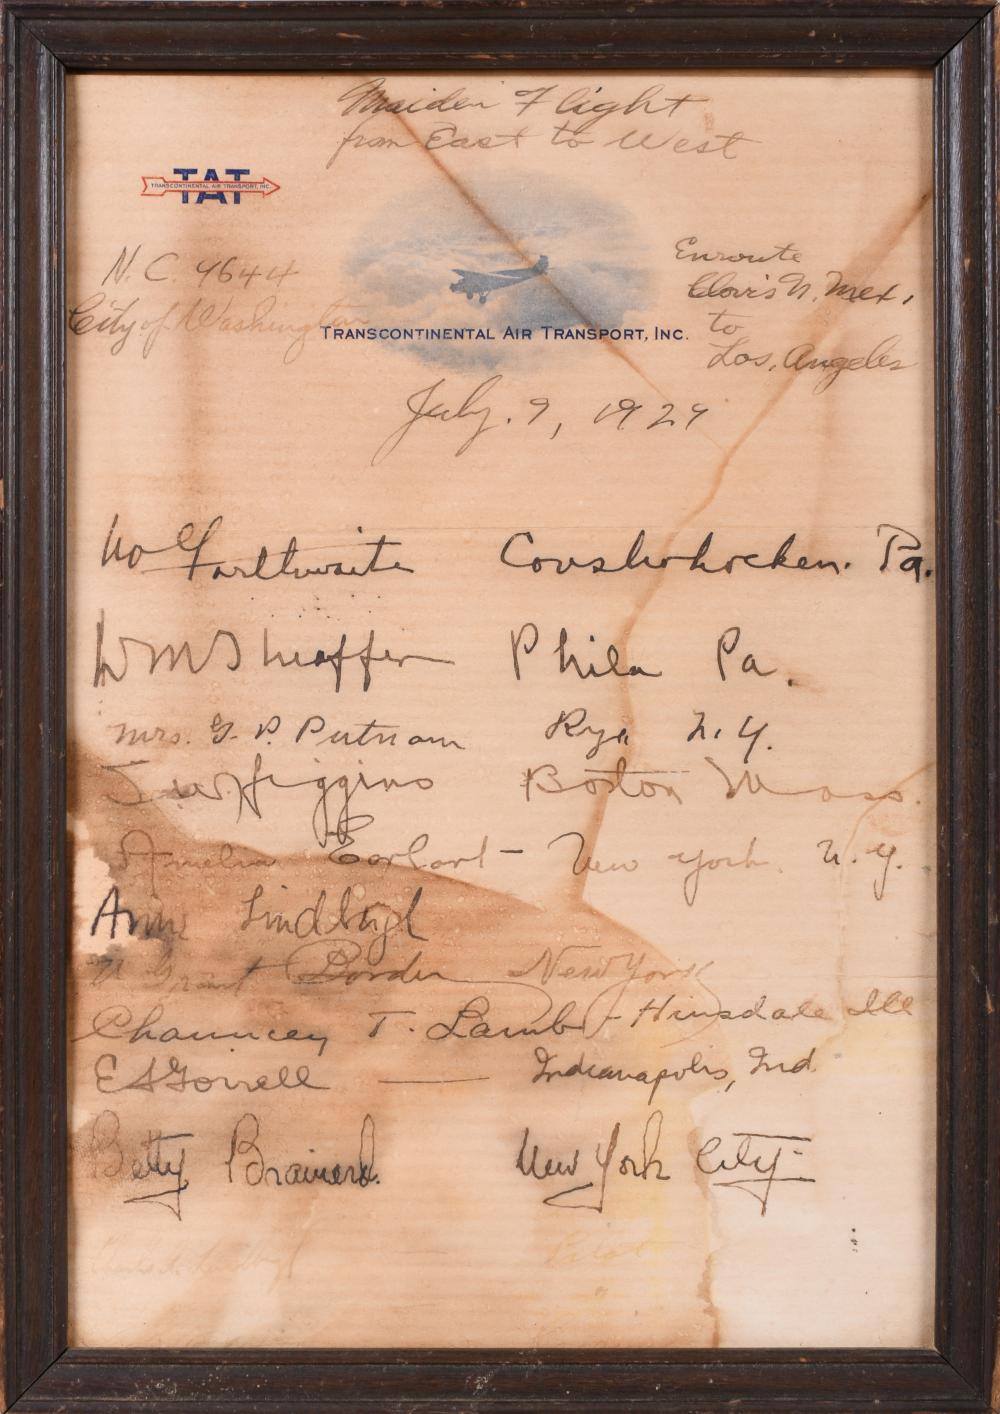 Maiden Flight
from East to West
TAT
TRANSCONTINENTAL AIR TRANSPORT, INC.
N.C. 9644
City of Washington
Enroute
Clovis N. Mex.,
to
Los. Angeles
TRANSCONTINENTAL AIR TRANSPORT, INC.
July. 9, 1929
Conshohocken. Pa.
Wm Sheaffer Phila Pa.
Mrs. G. P. Putnam Rye N.Y.
Higgins Boston Mass.
Amelia Earhart - New York N.Y.
Anne Lindbergh
Grant Border New York
Chauncey T. Lamb - Hinsdale Ill
E S Gorrell — Indianapolis, Ind.
Betty Brainerd. New York City-
Lindbergh Pilot